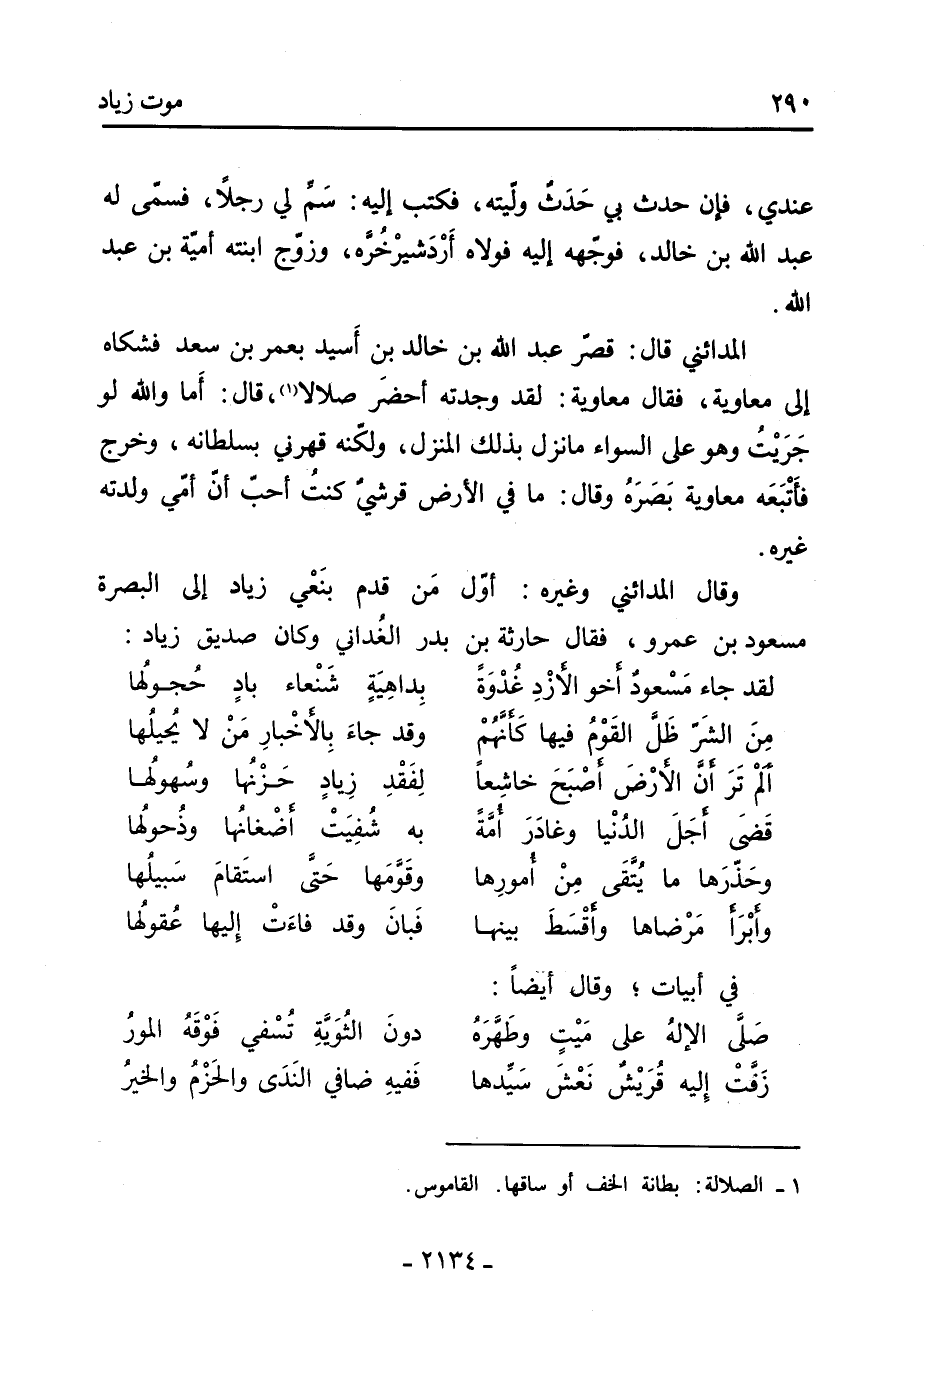 ٢٩٠ موت زياد
عندي، فإن حدث بي حَدَثٌ ولّيته، فكتب إليه: سَمِّ لي رجلاً، فسمّى له
عبد الله بن خالد، فوجّهه إليه فولاه أَرْدَشيرْخُرَّه، وزوّج ابنته أميّة بن عبد
الله.
المدائني قال: قصرّ عبد الله بن خالد بن أَسيد بعمر بن سعد فشكاه
إلى معاوية، فقال معاوية: لقد وجدته أحضرَ صلالا(١)، قال: أَما والله لو
جَرَيْتُ وهو على السواء مانزل بذلك المنزل، ولكنّه قهرني بسلطانه، وخرج
فأَتْبَعَه معاوية بَصَرَهُ وقال: ما في الأرض قرشيٌ كنتُ أحبّ أنّ أمّي ولدته
غيره.
وقال المدائني وغيره: أوّل مَن قدم بنَعْي زياد إلى البصرة
مسعود بن عمرو، فقال حارثة بن بدر الغُداني وكان صديق زياد:
لقد جاء مَسْعودٌ أَخو الأَزْدِ غُدْوَةً بِداهِيَةٍ شَنْعاء بادٍ حُجـولُها
مِنَ الشَرّ ظَلَّ القَوْمُ فيها كَأَنَّهُمْ وقد جاءَ بِالأَخْبارِ مَنْ لا يُحيلُها
أَلَمْ تَرَ أَنَّ الأَرْضَ أَصْبَحَ خاشِعاً لِفَقْدِ زِيادٍ حَـزْنُها وسُهولُهـا
قَضَى أَجَلَ الدُنْيا وغادَرَ أُمَّةً به شُفِيَتْ أَضْغانُها وذُحولُها
وحَذّرَها ما يُتَّقَى مِنْ أُمورِها وقَوَّمَها حَتَّى استَقامَ سَبيلُها
وأَبْرَأَ مَرْضاها وأَقْسَطَ بينهـا فَبانَ وقد فاءَتْ إليها عُقولُها
في أبيات؛ وقال أيضاً:
صَلَّى الإلهُ على مَيْتٍ وطَهَّرَهُ دونَ الثُوَيَّةِ تُسْفي فَوْقَهُ المورُ
زَفَّتْ إليه قُرَيْشٌ نَعْشَ سَيِّدها فَفيهِ ضافي النَدَى والحَزْمُ والخيرُ
١ ـ الصلالة: بطانة الخف أو ساقها. القاموس.
ـ ٢١٣٤ ـ